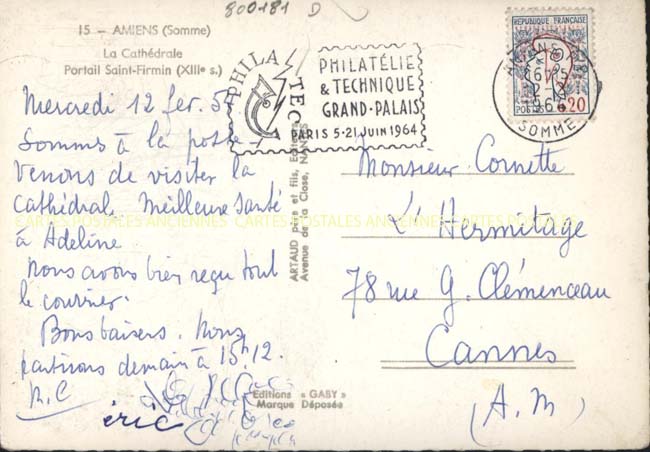 800181 D
15 - AMIENS (Somme)
La Cathédrale
Portail Saint-Firmin (XIIIe s.)
Mercredi 12 fev.
Somms à la poste
Venons de visiter la
cathédrale. Meilleure santé
à Adeline
Nous avons bien reçu tout
le courrier.
Bons baisers. Nous
partirons demain à 15h12.
éric
ARTAUD père et fils, Editeurs
Avenue de la Close, NANTES
Editions « GABY »
Marque Déposée
PHILATEC
PHILATÉLIE
& TECHNIQUE
GRAND-PALAIS
PARIS 5-21 JUIN 1964
REPUBLIQUE FRANÇAISE
POSTES 0,20
AMIENS
SOMME
Monsieur Cornette
L'Hermitage
78 rue G. Clémenceau
Cannes
(A.M)
CARTES POSTALES ANCIENNES CARTES POSTALES ANCIENNES CARTES POSTALES